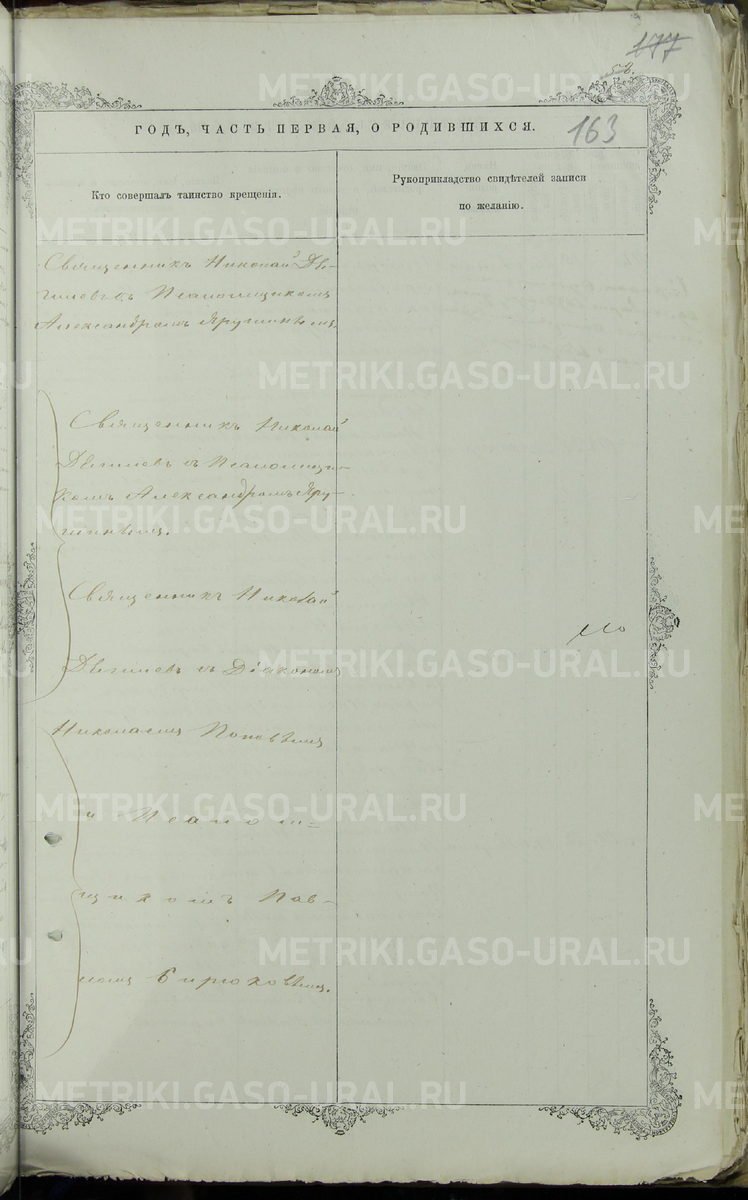 177
58.
163
ГОДЪ, ЧАСТЬ ПЕРВАЯ, О РОДИВШИХСЯ.
Кто совершалъ таинство крещенія.
Рукоприкладство свидѣтелей записи
по желанію.
Священникъ Николай
съ Псаломщикомъ
Александромъ Ярушинымъ
Священникъ Николай
съ Псаломщи-
комъ Александромъ Яру-
шинымъ.
Священникъ Николай
съ Діакономъ
Николаемъ Поповымъ
и Псалом=
щикомъ Пав-
ломъ Бирюковымъ.
METRIKI.GASO-URAL.RU